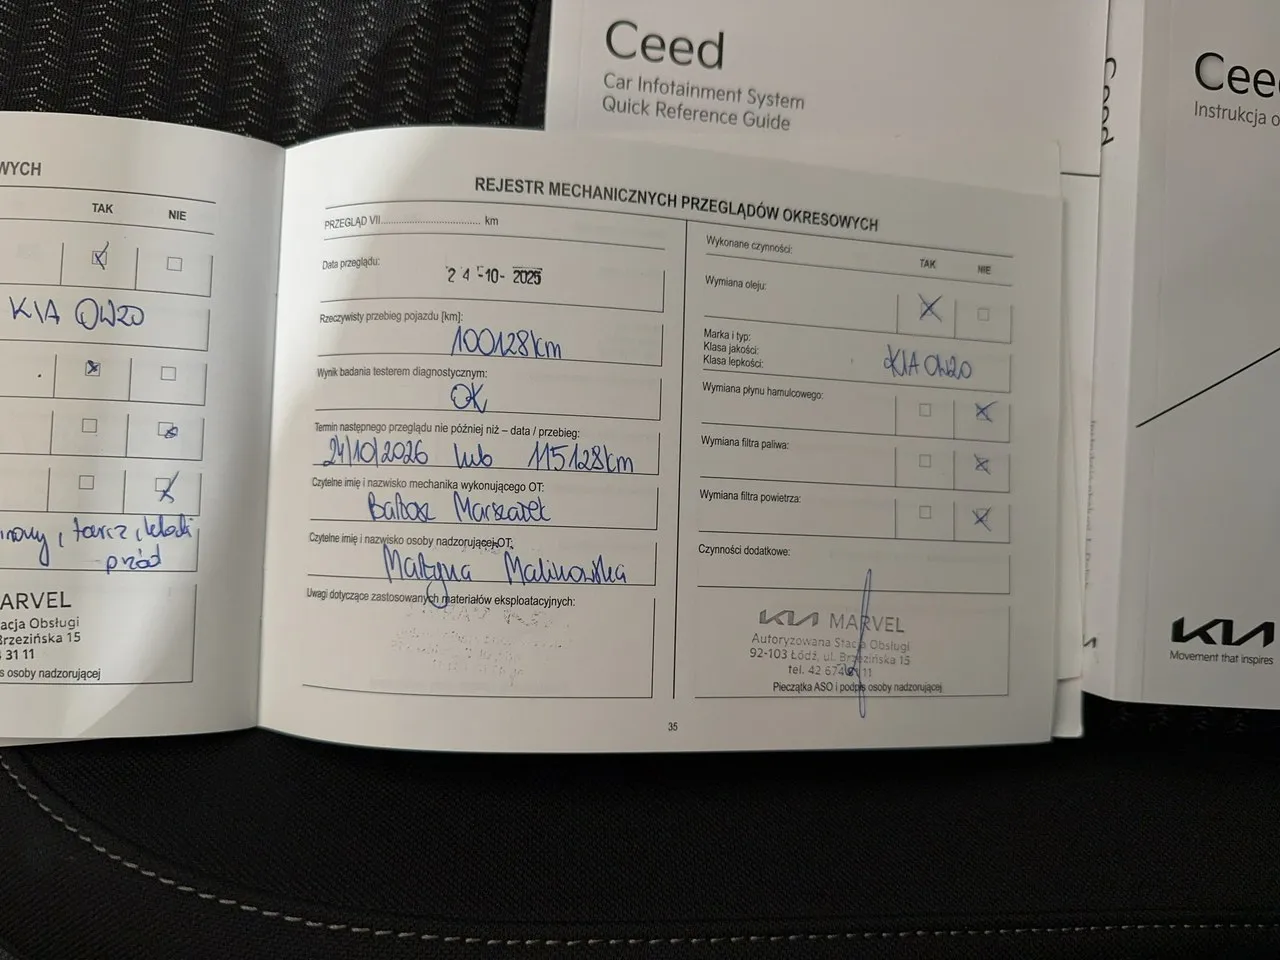 Ceed
Car Infotainment System
Quick Reference Guide
Ceed
Cee
Instrukcja o
KIA
Movement that inspires
WYCH
TAK NIE
KIA 0W20
tarcz, klocki
przód
ARVEL
acja Obsługi
Brzezińska 15
31 11
s osoby nadzorującej
REJESTR MECHANICZNYCH PRZEGLĄDÓW OKRESOWYCH
PRZEGLĄD VII.................................... km
Data przeglądu:
24 -10- 2025
Rzeczywisty przebieg pojazdu [km]:
100128km
Wynik badania testerem diagnostycznym:
OK
Termin następnego przeglądu nie później niż – data / przebieg:
24/10/2026 lub 115128km
Czytelne imię i nazwisko mechanika wykonującego OT:
Bartosz Marszałek
Czytelne imię i nazwisko osoby nadzorującej OT:
Martyna Malinowska
Uwagi dotyczące zastosowanych materiałów eksploatacyjnych:
Wykonane czynności:
TAK NIE
Wymiana oleju:
Marka i typ:
Klasa jakości:
Klasa lepkości:
KIA 0W20
Wymiana płynu hamulcowego:
Wymiana filtra paliwa:
Wymiana filtra powietrza:
Czynności dodatkowe:
KIA MARVEL
Autoryzowana Stacja Obsługi
92-103 Łódź, ul. Brzezińska 15
tel. 42 674 31 11
Pieczątka ASO i podpis osoby nadzorującej
35